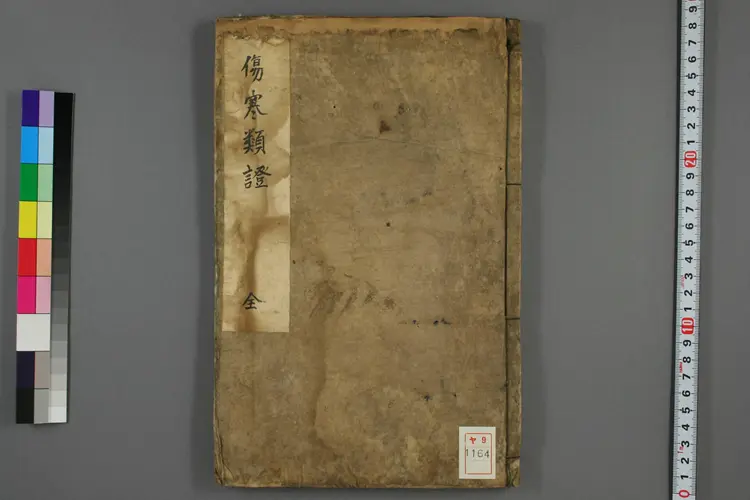 傷寒類證
全
ヤ9
1164
9
8
7
6
5
4
3
2
1
20
9
8
7
6
5
4
3
2
1
10
9
8
7
6
5
4
3
2
1
0